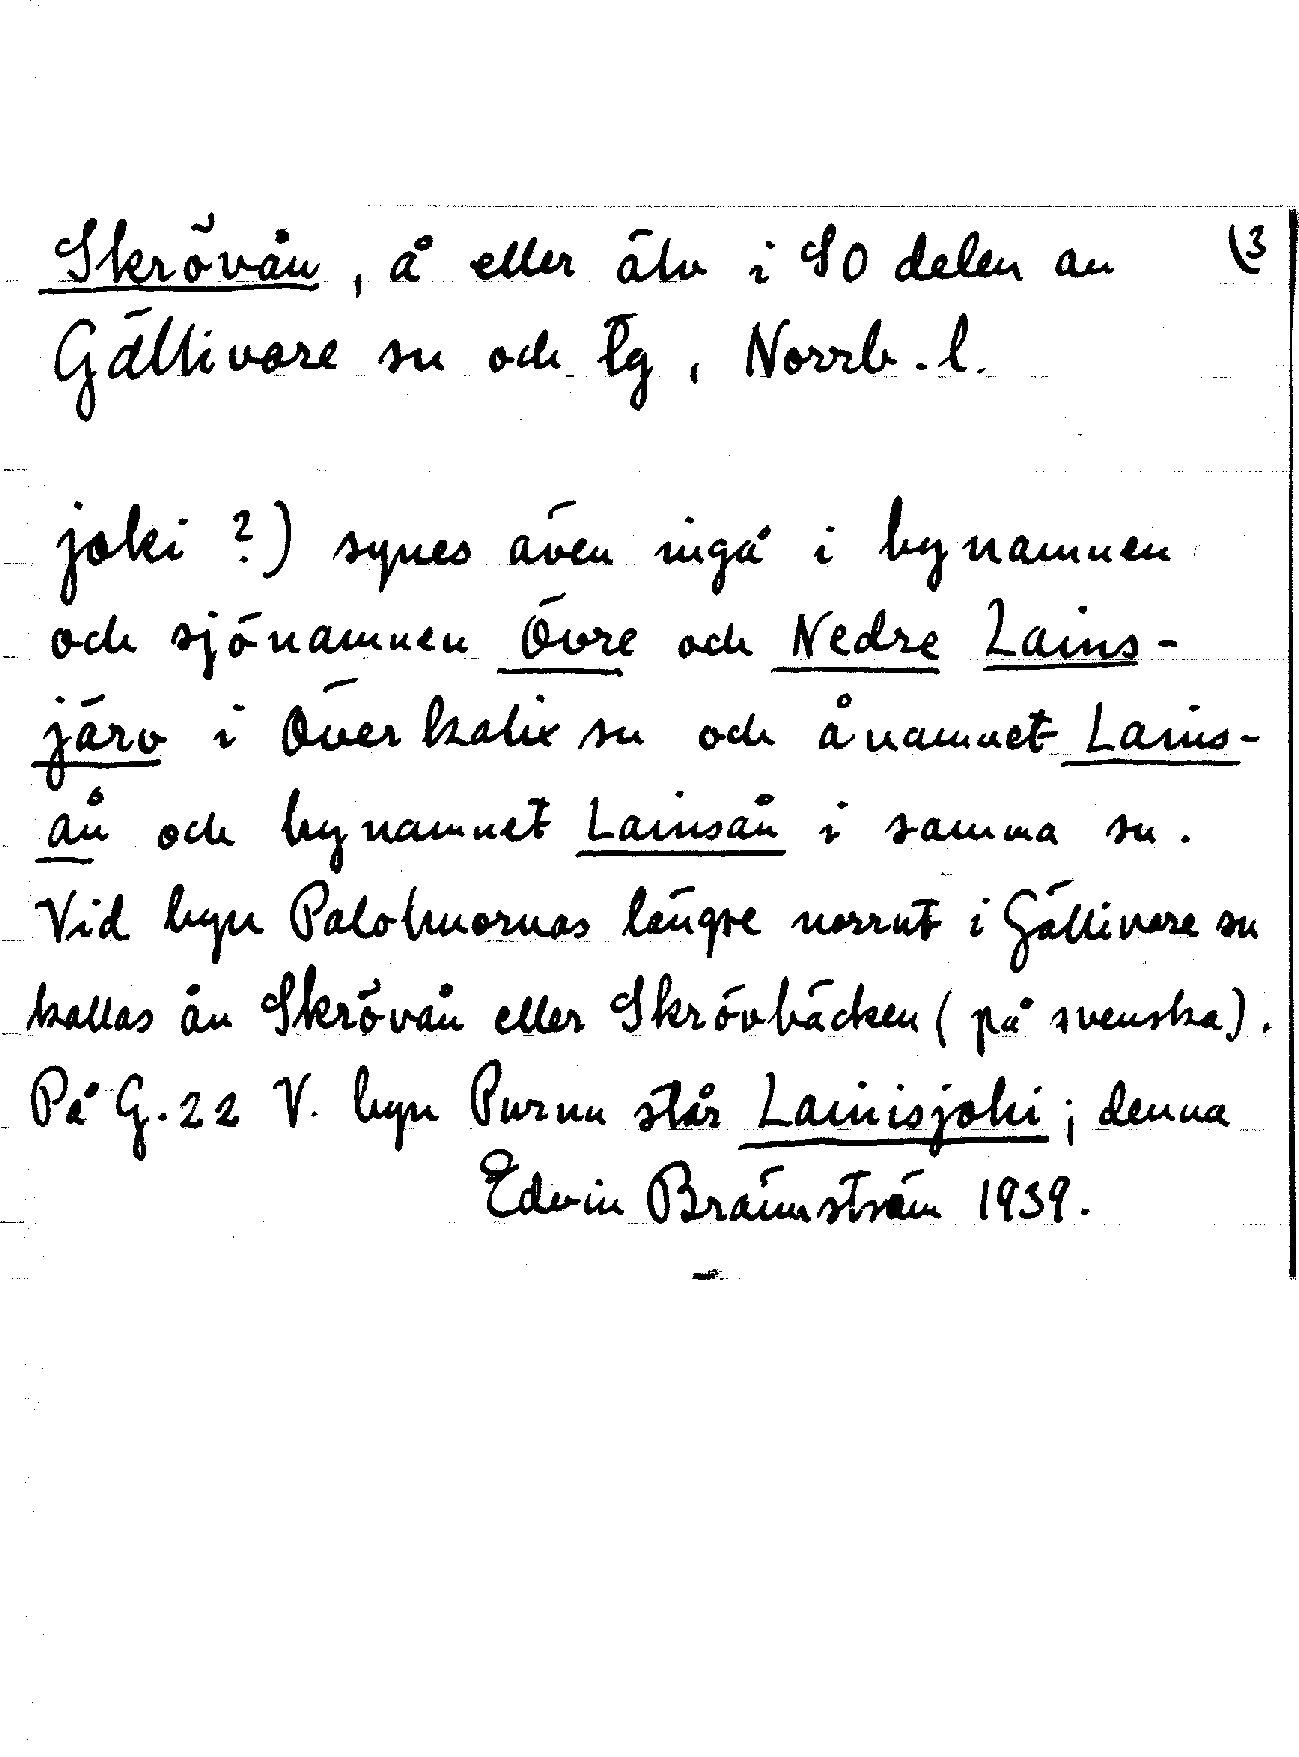 Skrövån, å eller älv i SO delen av (3
Gällivare sn och tg, Norrb. l.
joki ?) synes även ingå i bynamnen
och sjönamnen Övre och Nedre Lains-
järv i Överkalix sn och ånamnet Lains-
ån och bynamnet Lainsån i samma sn.
Vid byn Palohuornas längre norrut i Gällivare sn
kallas ån Skrövån eller Skrövbäcken (på svenska).
På G. 22 V. byn Purnu står Lainisjoki; denna
Edvin Brännström 1939.